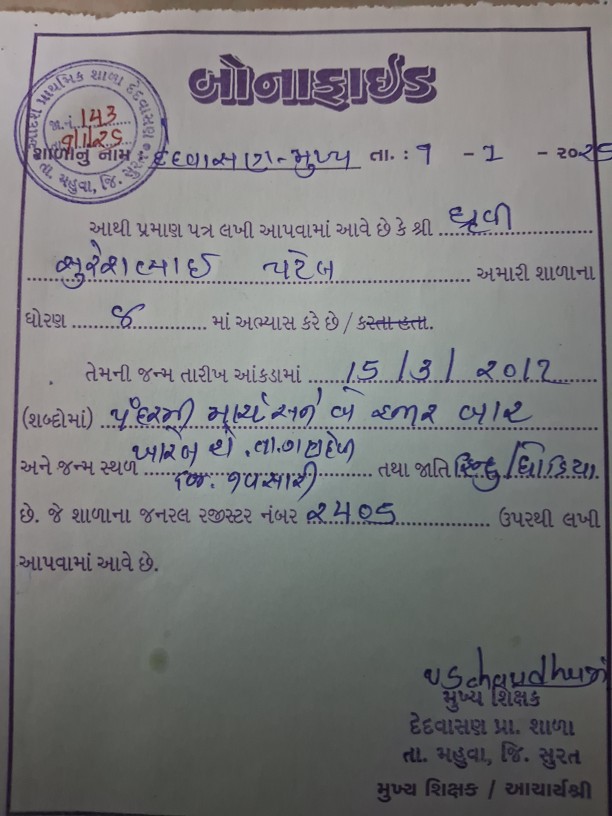 બોનાફાઈડ
આદર્શ પ્રાથમિક શાળા દેદવાસણ
જા.નં. 143
તા. 9/1/25
તા. મહુવા, જિ. સુરત
શાળાનું નામ : દેદવાસણ-મુખ્ય તા. : ૧ - 1 - ૨૦૨૫
આથી પ્રમાણ પત્ર લખી આપવામાં આવે છે કે શ્રી ધ્રૂવી
સુરેશભાઈ પટેલ અમારી શાળાના
ધોરણ ૭ માં અભ્યાસ કરે છે / કરતા હતા.
તેમની જન્મ તારીખ આંકડામાં 15/3/૨૦1૨
(શબ્દોમાં) પંદરમી માર્ચ સને બે હજાર બાર
અને જન્મ સ્થળ ખારેલ તા. ગણદેવી
જિ. નવસારી તથા જાતિ હિન્દુ/ધોડિયા
છે. જે શાળાના જનરલ રજીસ્ટર નંબર ૨405 ઉપરથી લખી
આપવામાં આવે છે.
મુખ્ય શિક્ષક
દેદવાસણ પ્રા. શાળા
તા. મહુવા, જિ. સુરત
મુખ્ય શિક્ષક / આચાર્યશ્રી